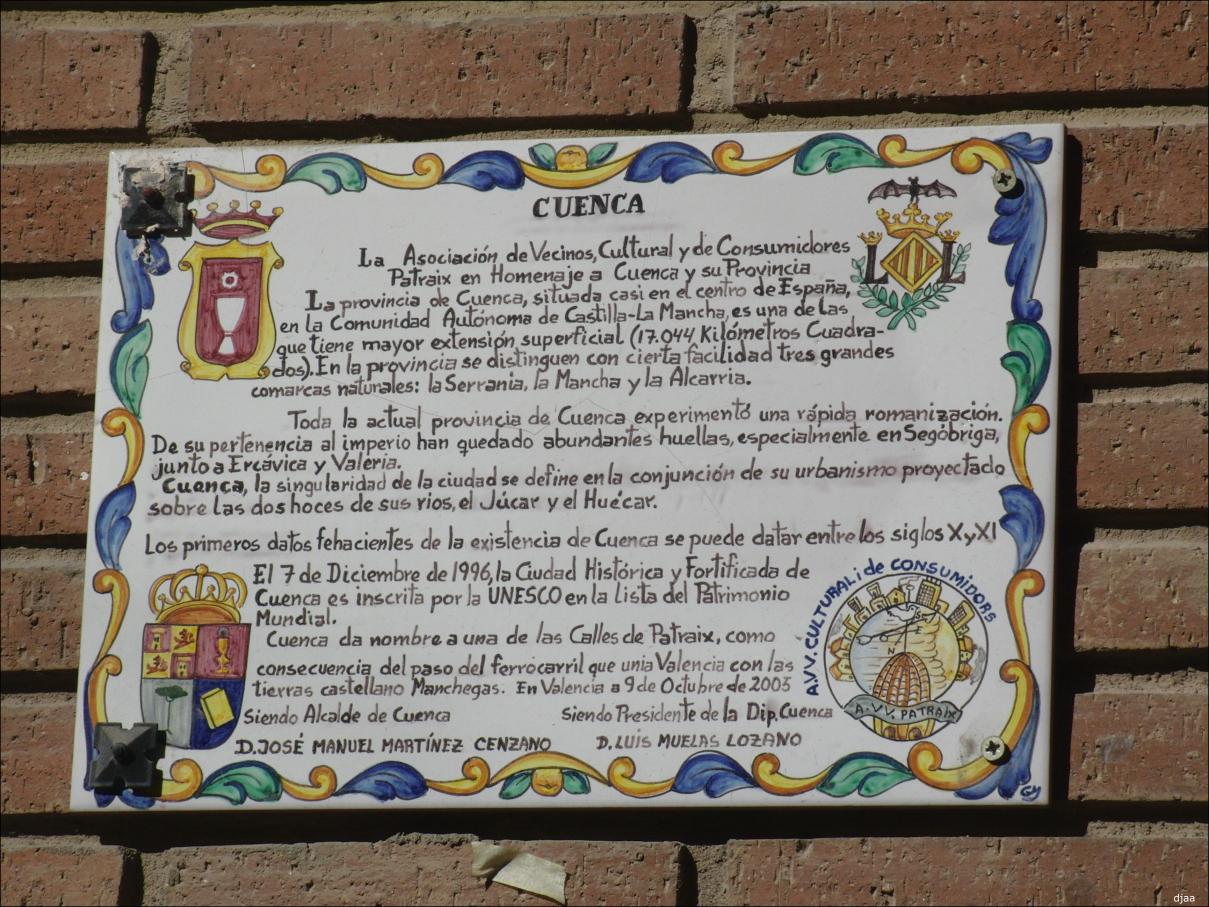 CUENCA
La Asociación de Vecinos, Cultural y de Consumidores
Patraix en Homenaje a Cuenca y su Provincia
La provincia de Cuenca, situada casi en el centro de España,
en la Comunidad Autónoma de Castilla-La Mancha, es una de las
que tiene mayor extensión superficial (17.044 Kilómetros Cuadra-
dos). En la provincia se distinguen con cierta facilidad tres grandes
comarcas naturales: la Serrania, la Mancha y la Alcarria.
Toda la actual provincia de Cuenca experimentó una rápida romanización.
De su pertenencia al imperio han quedado abundantes huellas, especialmente en Segóbriga,
junto a Ercávica y Valeria.
Cuenca, la singularidad de la ciudad se define en la conjunción de su urbanismo proyectado
sobre las dos hoces de sus rios, el Júcar y el Huécar.
Los primeros datos fehacientes de la existencia de Cuenca se puede datar entre los siglos X y XI
El 7 de Diciembre de 1996, la Ciudad Histórica y Fortificada de
Cuenca es inscrita por la UNESCO en la Lista del Patrimonio
Mundial.
Cuenca da nombre a una de las Calles de Patraix, como
consecuencia del paso del ferrocarril que unia Valencia con las
tierras castellano Manchegas. En Valencia a 9 de Octubre de 2005
Siendo Alcalde de Cuenca
Siendo Presidente de la Dip. Cuenca
D. JOSÉ MANUEL MARTÍNEZ CENZANO
D. LUIS MUELAS LOZANO
L L
A.V.V. CULTURAL i de CONSUMIDORS
A. VV. PATRAIX
GM
djaa